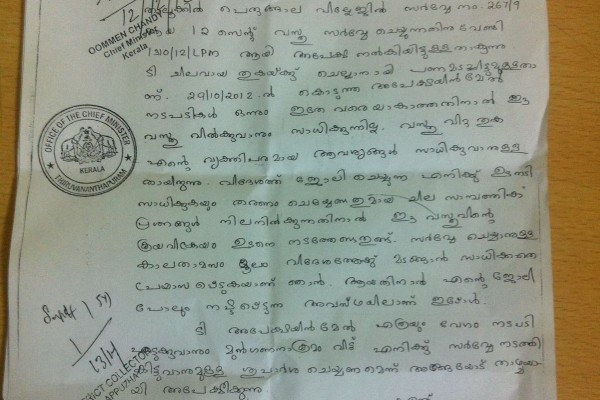 താലൂക്കിൽ പെരുങ്ങാല വില്ലേജിൽ സർവ്വേ നം. 267/9
ആയ 12 സെന്റ് വസ്തു സർവ്വേ ചെയ്യുന്നതിനു വേണ്ടി
1310/12/LPM ആയി അപേക്ഷ നൽകിയിട്ടുള്ളതാകുന്നു
ടി ചിലവായ തുകയ്ക്ക് ചെല്ലാനായി പണമടച്ചിട്ടുമുള്ളതാ
ണ്. 29/10/2012 ൽ കൊടുത്ത അപേക്ഷയിൻ മേൽ
നടപടികൾ ഒന്നും ഇതേ വരെയാകാത്തതിനാൽ ഈ
വസ്തു വിൽക്കുവാനും സാധിക്കുന്നില്ല. വസ്തു വിറ്റ തുക
എന്റെ വ്യക്തിപരമായ ആവശ്യങ്ങൾ സാധിക്കുവാനുള്ള
തായിരുന്നു. വിദേശത്ത് ജോലി ചെയ്യുന്ന എനിക്ക് ഉടനടി
സാധിക്കുകയും തരണം ചെയ്യേണ്ടുമായ ചില സാമ്പത്തിക
പ്രശ്നങ്ങൾ നിലനിൽക്കുന്നതിനാൽ ഈ വസ്തുവിന്റെ
ക്രയവിക്രയം ഉടനെ നടത്തേണ്ടതുണ്ട്. സർവ്വേ ചെയ്യാനുള്ള
കാലതാമസം മൂലം വിദേശത്തേക്ക് മടങ്ങാൻ സാധിക്കാതെ
പ്രയാസപ്പെടുകയാണ് ഞാൻ. ആയതിനാൽ എന്റെ ജോലി
പോലും നഷ്ടപ്പെടുന്ന അവസ്ഥയിലാണ് ഇപ്പോൾ.
ടി അപേക്ഷയിൻമേൽ എത്രയും വേഗം നടപടി
എടുക്കുവാനും മുൻഗണനാക്രമം വിട്ട് എനിക്ക് സർവ്വേ നടത്തി
കിട്ടുവാനുമുള്ള ശുപാർശ ചെയ്യണമെന്ന് അങ്ങയോട് താഴ്മയാ
യി അപേക്ഷിക്കുന്നു
12/
OOMMEN CHANDY
Chief Minister
Kerala
OFFICE OF THE CHIEF MINISTER
KERALA
THIRUVANANTHAPURAM
1
13/14
DISTRICT COLLECTOR
ALAPPUZHA